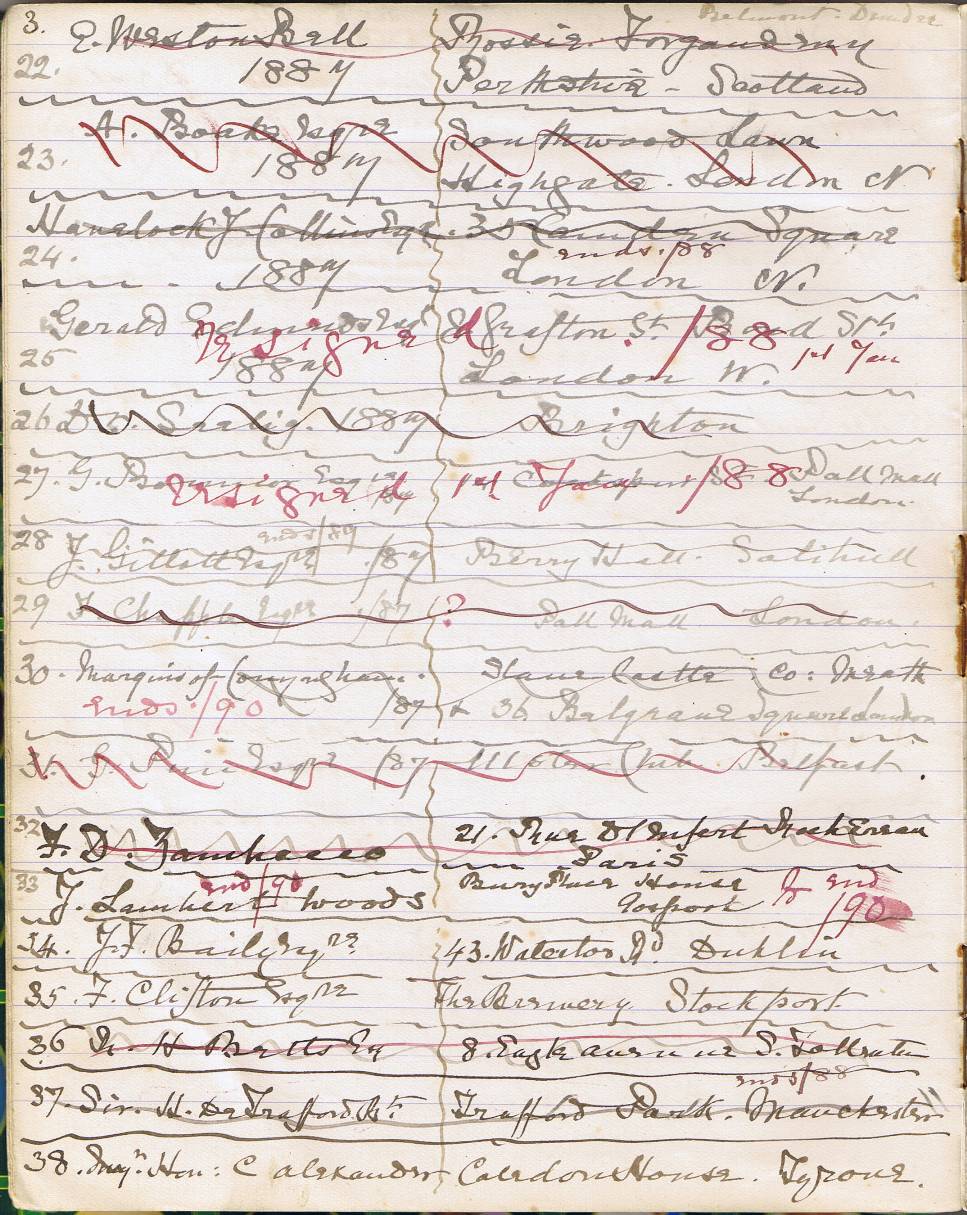 3.
Belmont. Dundee
E. Weston Bell Rossie. Forgandenny
22. 1887 Perthshire - Scotland
A. Boak Esqre Southwood Lawn
23. 1887 Highgate. London N
Havelock J Collins Esqr. 35 Camden Square
24. 1887 London N.
ends /88
Gerald Grafton St. Bond Sth
resigned /88 1st Jan
25 1887 London W.
26 1887 Brighton
27. G. Esq /87 Pall Mall
London.
resigned 1st Jan /88
ends /89
28 J. Gillott Esqre /87 Berry Hall. Solihull
29 Esqre /87 ? Pall Mall London.
30. Marquis of Conyngham. Slane Castle Co: Meath
ends /90 /87 & 36 Belgrave Square London
31. Esqre /87 Ulster Club Belfast
32
F. D. Zambacco 21. Rue Denfert Rochereau
Paris
33 end /90 Bury House to end
J. Lambert Woods Gosport /90
34. J.F. Baily Esqre 43. Waterloo Rd. Dublin
35. F. Clifton Esqre The Brewery Stockport
36 H Betts Esq 8. Eagle avenue
ends /88
37. Sir. H. De Trafford Bt. Trafford Park. Manchester
38. Hon: C alexander Caledon House. Tyrone.